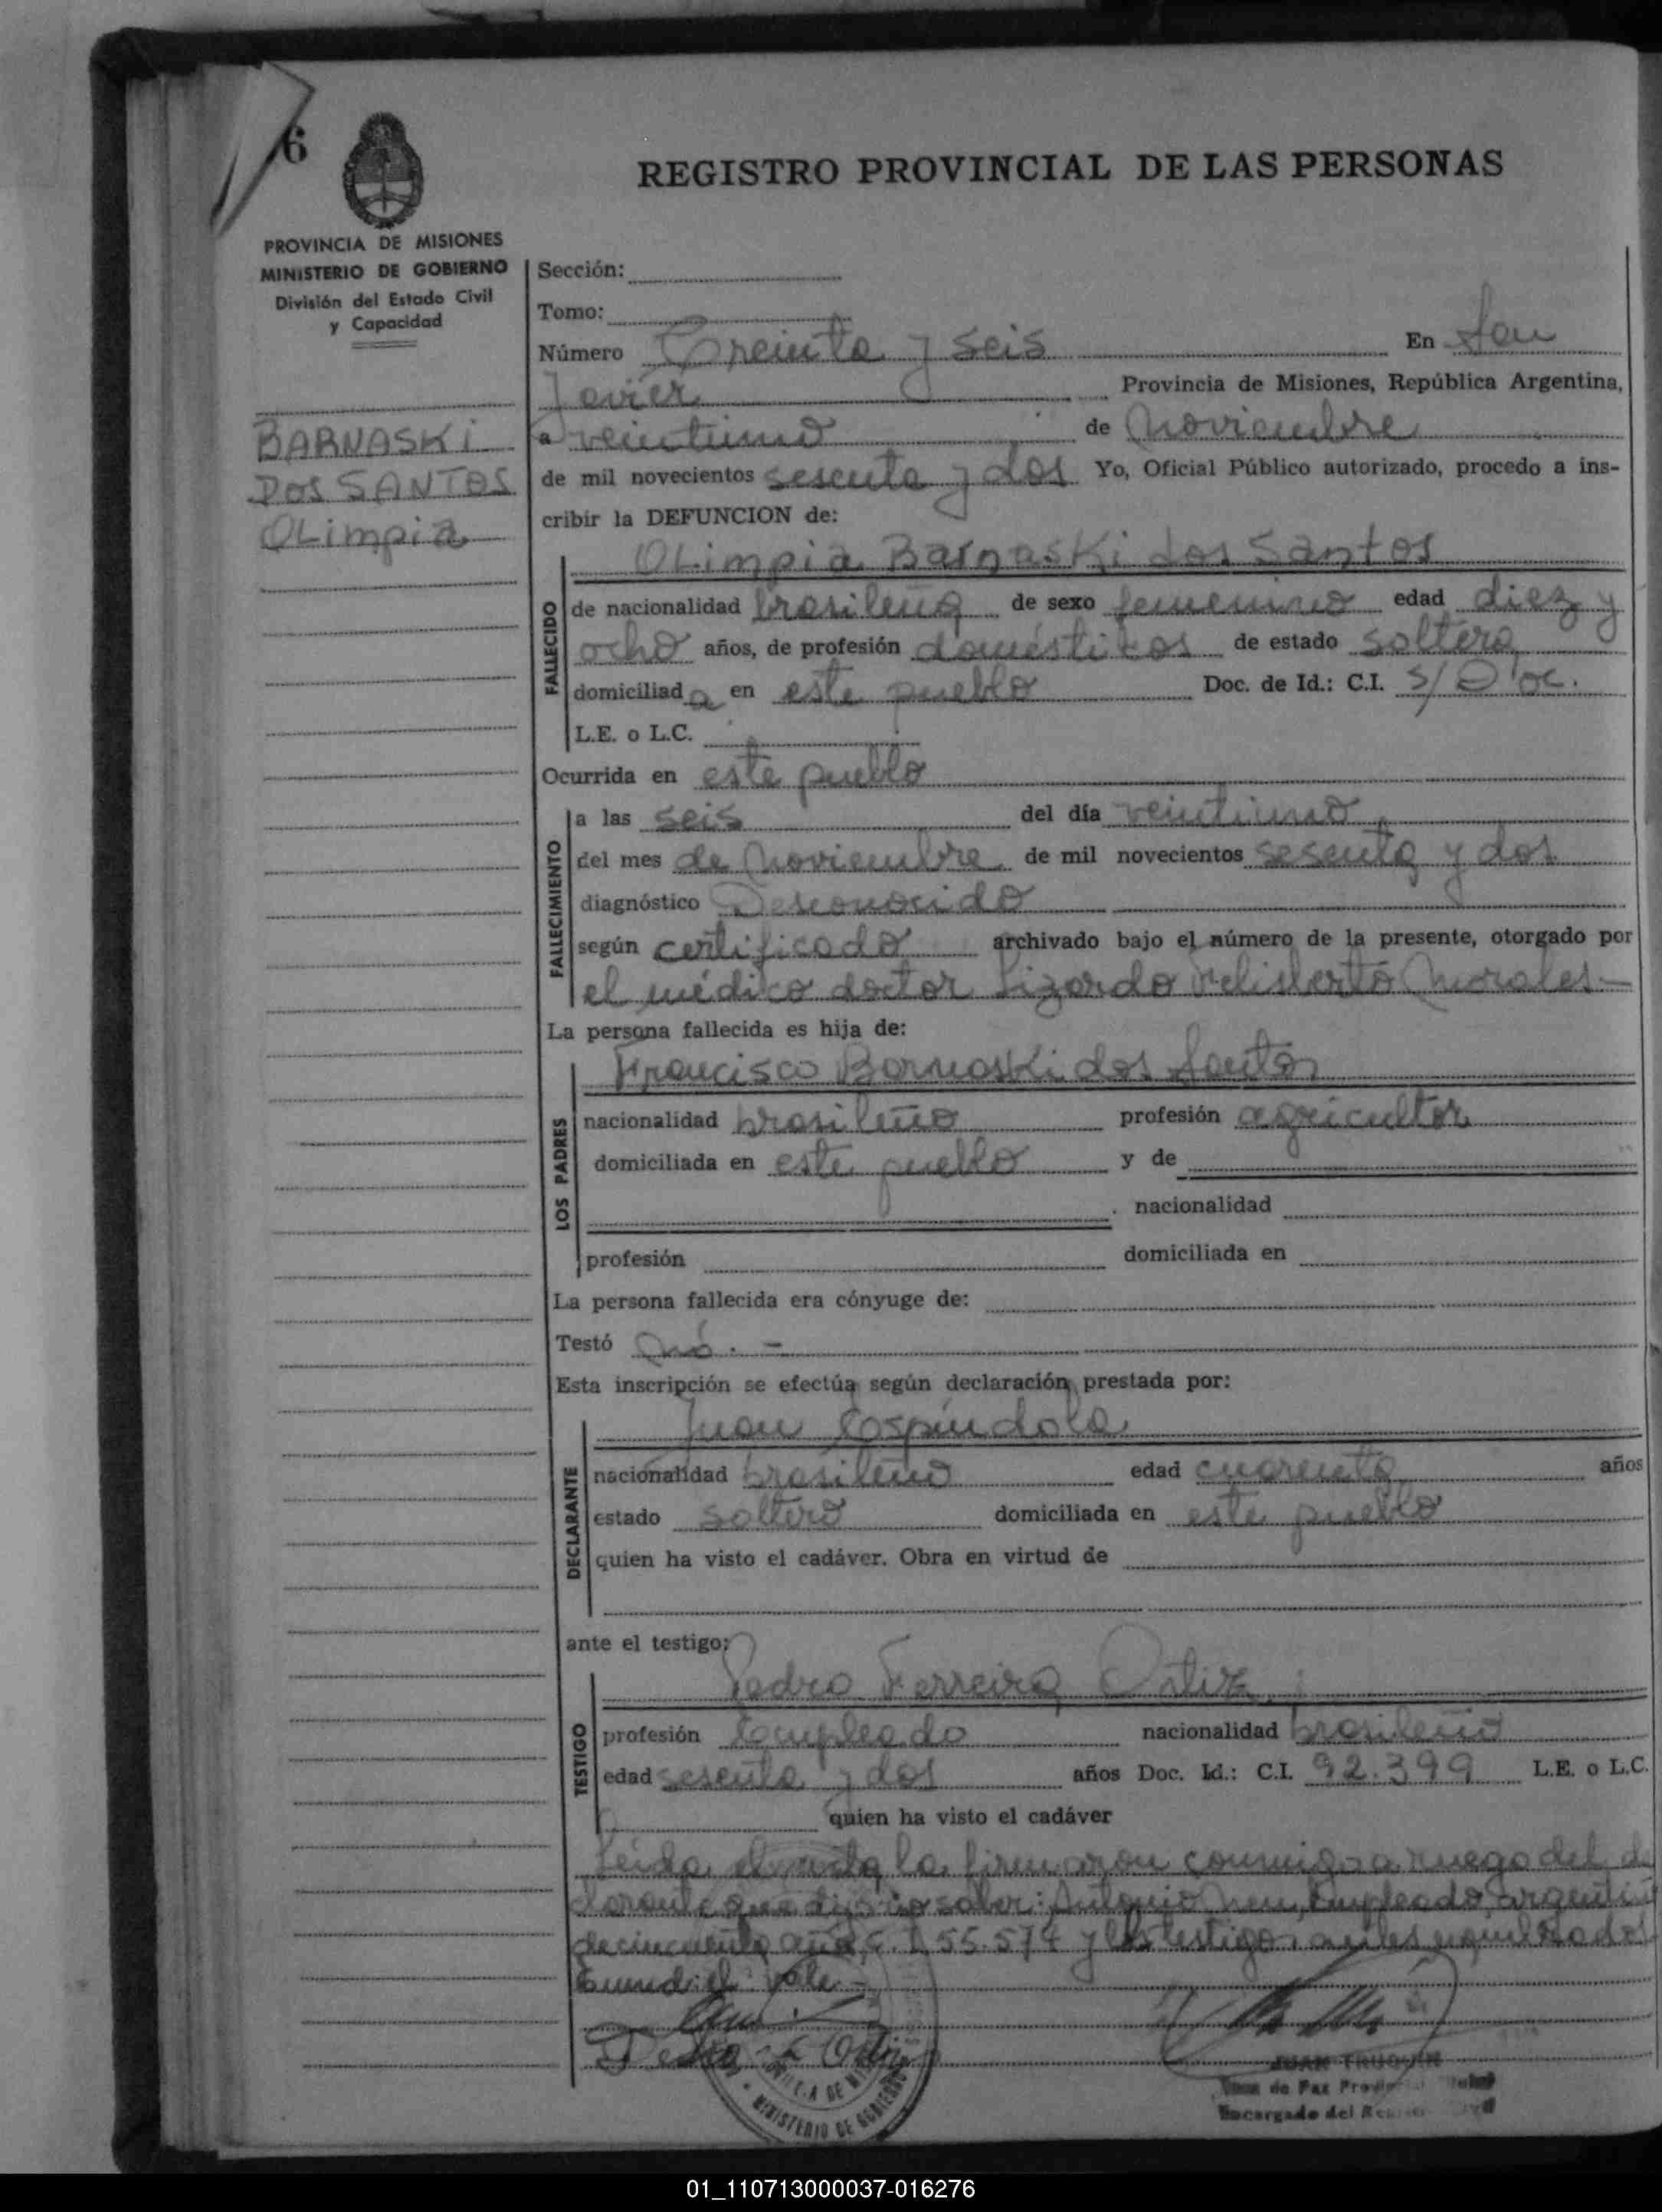 6
REGISTRO PROVINCIAL DE LAS PERSONAS
PROVINCIA DE MISIONES
MINISTERIO DE GOBIERNO
División del Estado Civil
y Capacidad
BARNASKi
DOS SANTOS
OLimpia
Sección:
Tomo:
Número Treinta y seis En San
Javier Provincia de Misiones, República Argentina,
a veintiuno de Noviembre
de mil novecientos sesenta y dos Yo, Oficial Público autorizado, procedo a ins-
cribir la DEFUNCION de:
OLimpia Barnaski dos Santos
FALLECIDO
de nacionalidad brasileña de sexo femenino edad diez y
ocho años, de profesión domésticos de estado soltera
domiciliada en este pueblo Doc. de Id.: C.I. S/Doc.
L.E. o L.C.
Ocurrida en este pueblo
FALLECIMIENTO
a las seis del día veintiuno
del mes de Noviembre de mil novecientos sesenta y dos
diagnóstico Desconocido
según certificado archivado bajo el número de la presente, otorgado por
el médico doctor Lizardo Felisberto Morales-
La persona fallecida es hija de:
LOS PADRES
Francisco Barnaski dos Santos
nacionalidad brasileño profesión agricultor
domiciliada en este pueblo y de
nacionalidad
profesión domiciliada en
La persona fallecida era cónyuge de:
Testó Nó. -
Esta inscripción se efectúa según declaración prestada por:
DECLARANTE
Juan Espíndola
nacionalidad brasileño edad cuarenta años
estado soltero domiciliada en este pueblo
quien ha visto el cadáver. Obra en virtud de
ante el testigo:
TESTIGO
Pedro Ferreira Ortiz
profesión Empleado nacionalidad brasileño
edad sesenta y dos años Doc. Id.: C.I. 92.399 L.E. o L.C.
quien ha visto el cadáver
Leída el acta la firmaron conmigo a ruego del de
clarante que dijo no saber: Antonio Empleado, argentino
de cincuenta años, C. I. 55.574 y el testigo antes
Enmd: el Vale -
Pedro F Ortiz
MINISTERIO DE GOBIERNO
JUAN TRUQUIN
Juez de Paz Provincial
Encargado del Registro Civil
01_110713000037-016276